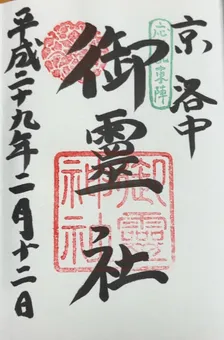 京洛中
御靈社
平成二十九年二月十二日
御靈神社